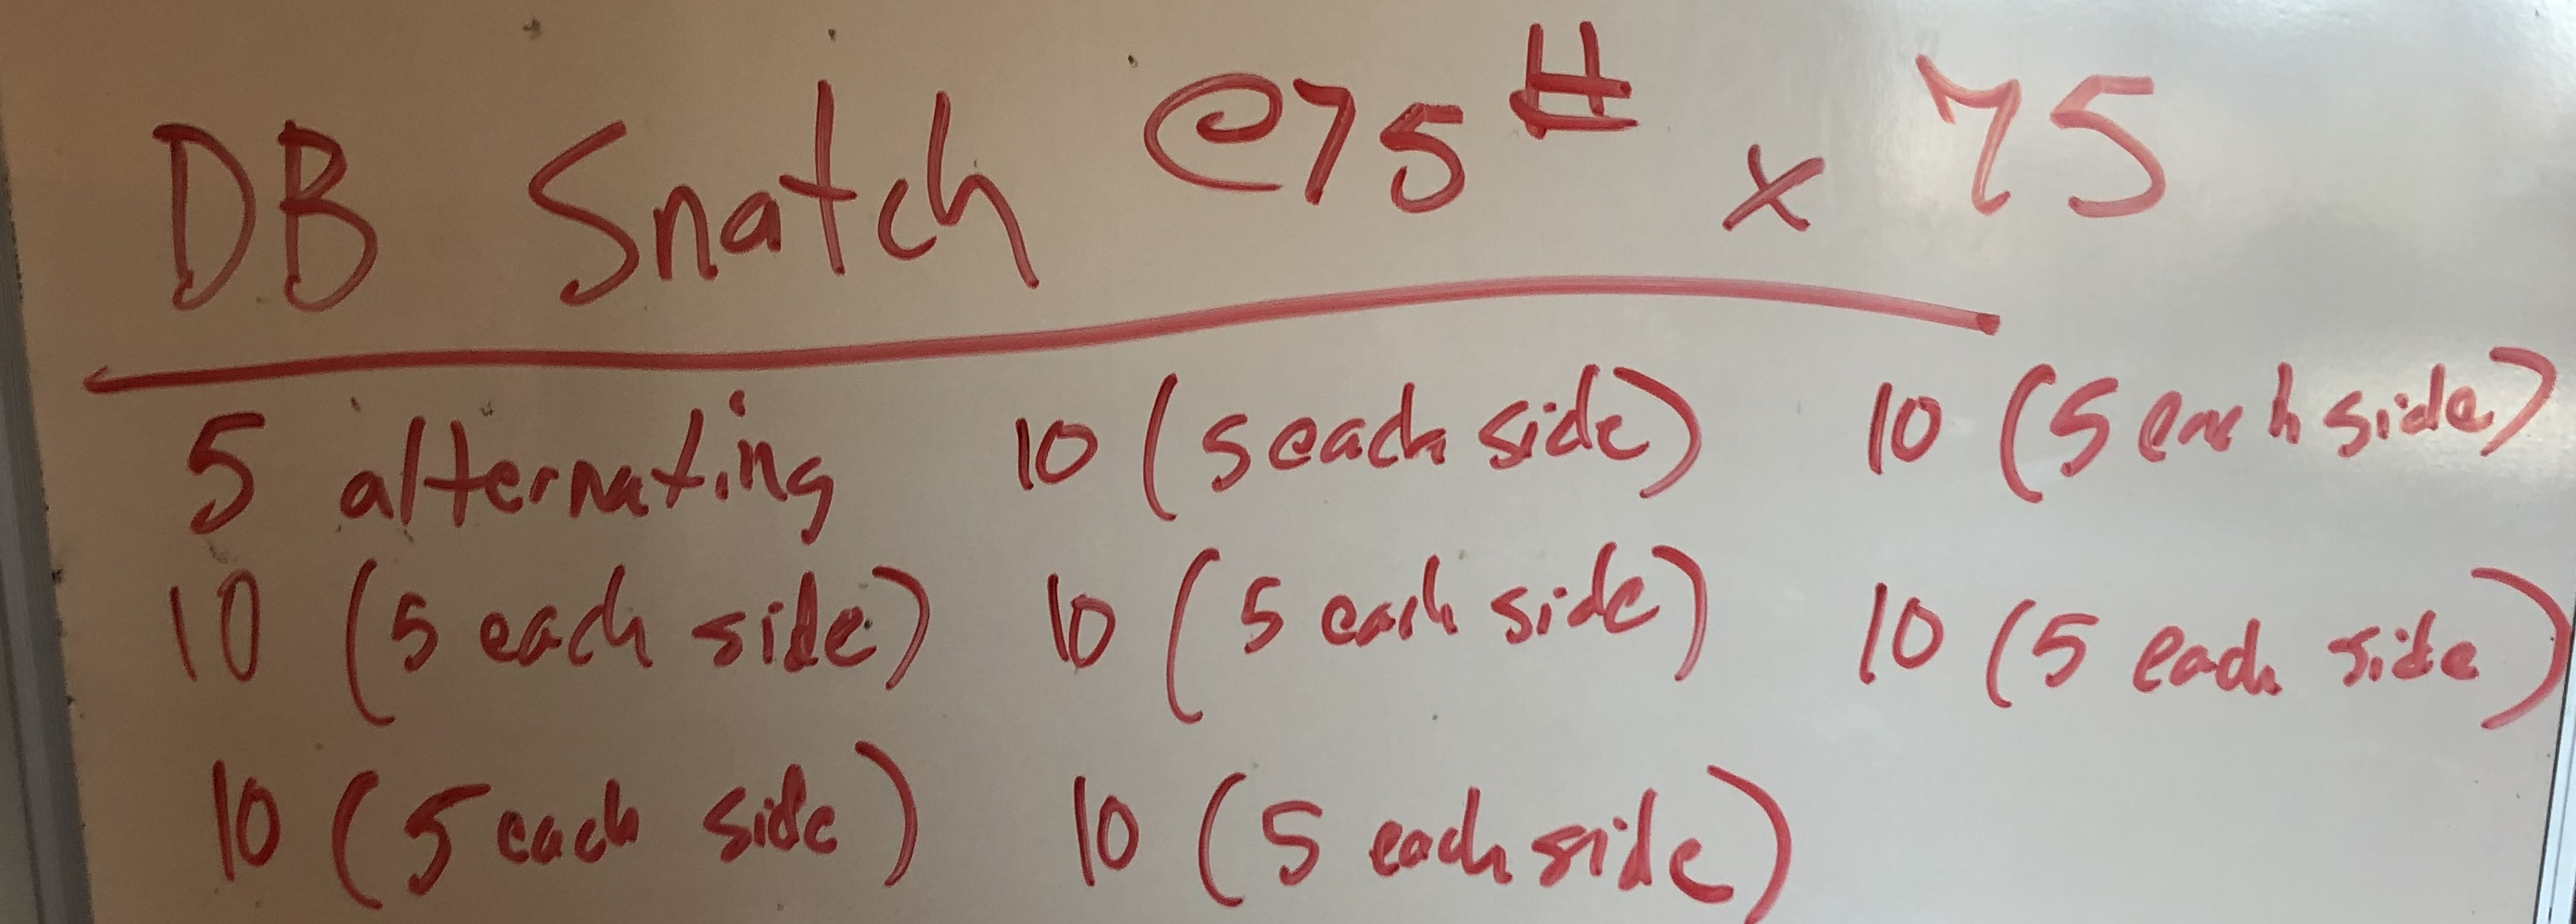 DB Snatch @75# x 75
5 alternating 10 (5 each side) 10 (5 each side)
10 (5 each side) 10 (5 each side) 10 (5 each side)
10 (5 each side) 10 (5 each side)